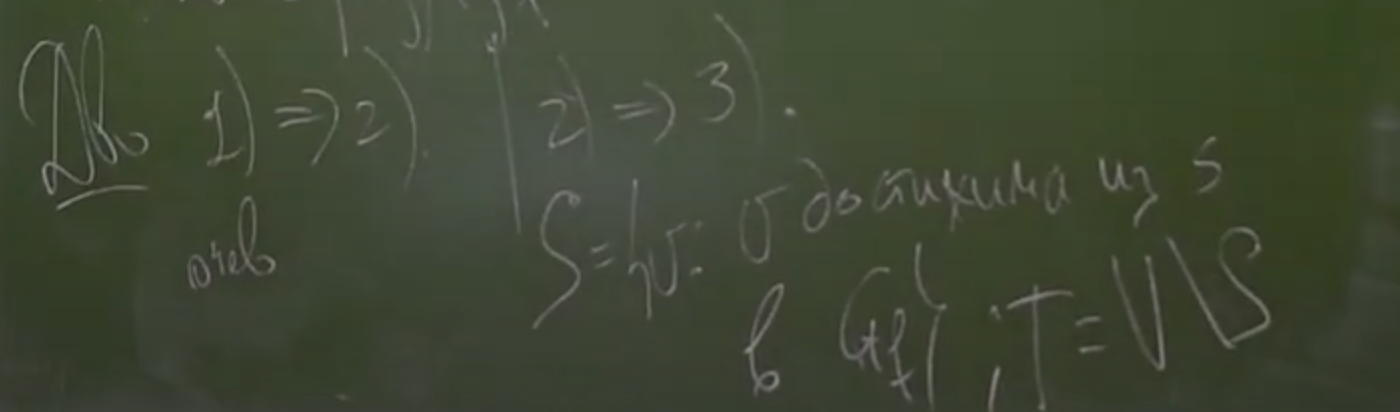 Д-во 1) => 2). | 2) => 3).
очев
S = {v: v достижима из s
в G_f}, T = V \ S